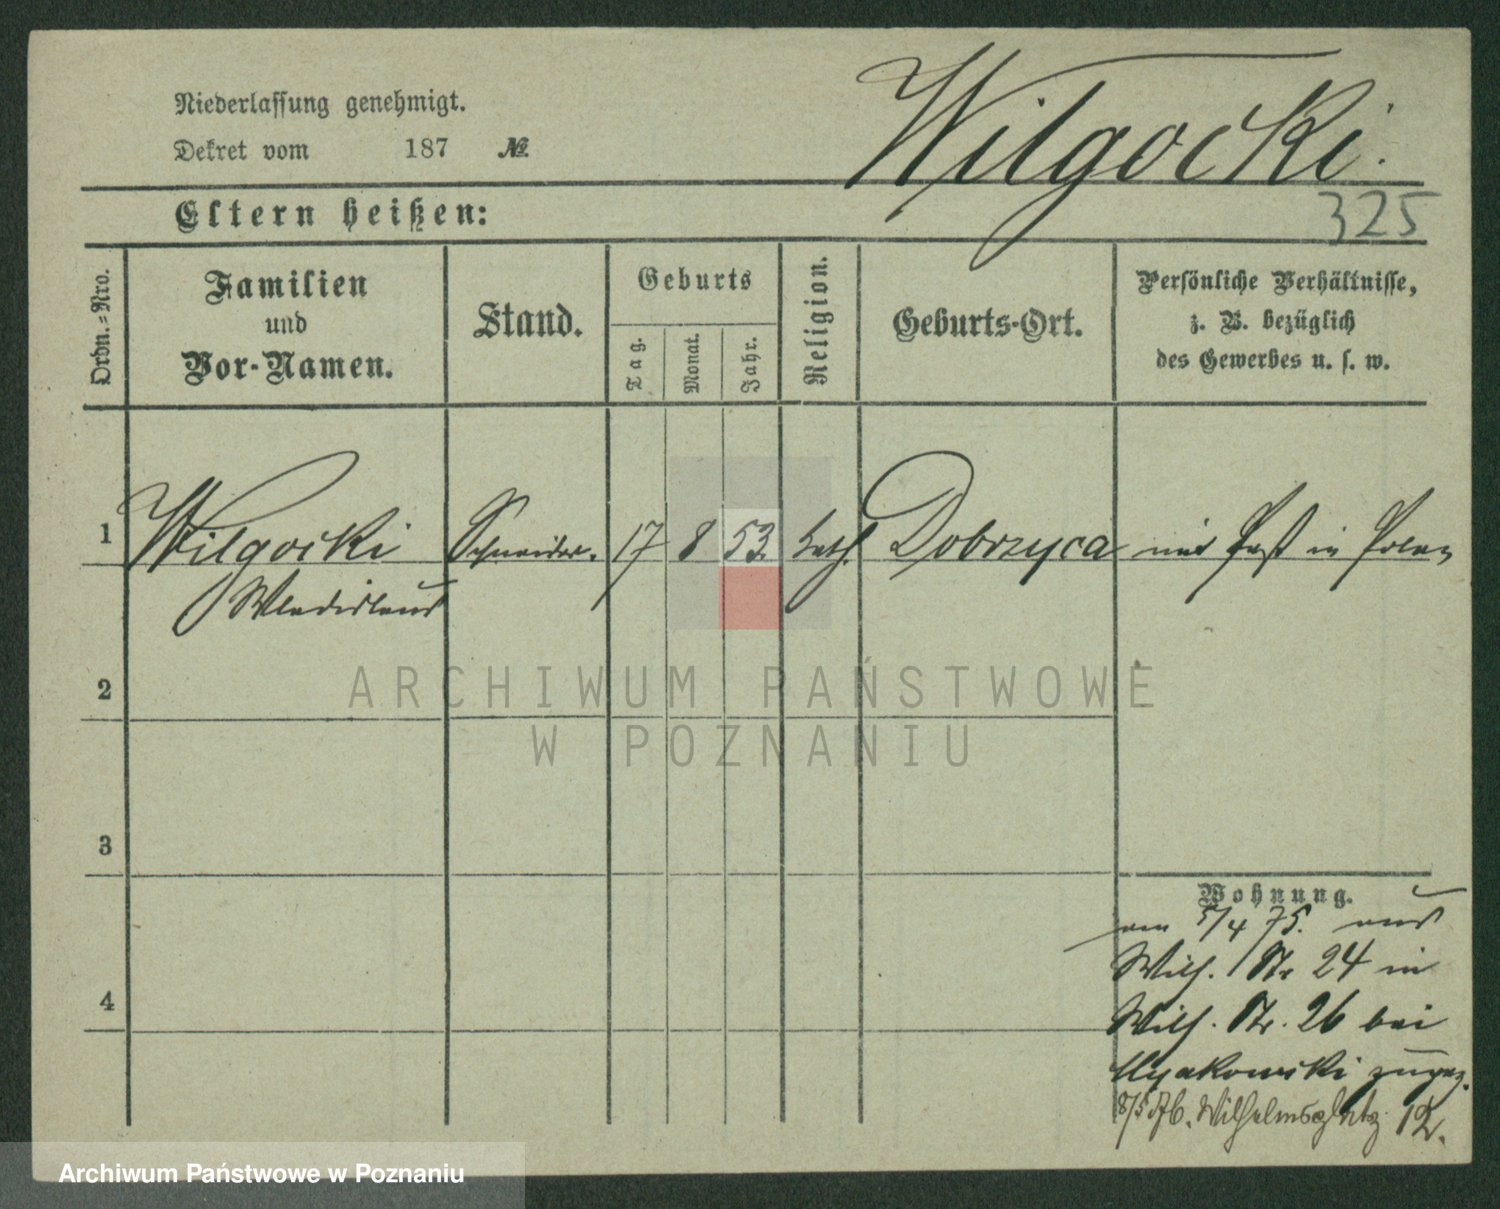 Wilgocki.
Niederlassung genehmigt.
Dekret vom 187 №
325
Eltern heißen:
Ordn.-Nro.
Familien
und
Vor-Namen.
Stand.
Geburts
Tag.
Monat.
Jahr.
Religion.
Geburts-Ort.
Persönliche Verhältnisse,
z. B. bezüglich
des Gewerbes u. s. w.
1 Wilgocki Schneider. 17 8 53. kath. Dobrzyca mit Paß in Polen
Wladislaus
2
3
4
Wohnung.
am 5/4 75. aus
Wilh. Str 24 in
Wilh. Str. 26 bei
zugez.
8/5 Wilhelmsplatz 12.
ARCHIWUM PAŃSTWOWE
W POZNANIU
Archiwum Państwowe w Poznaniu